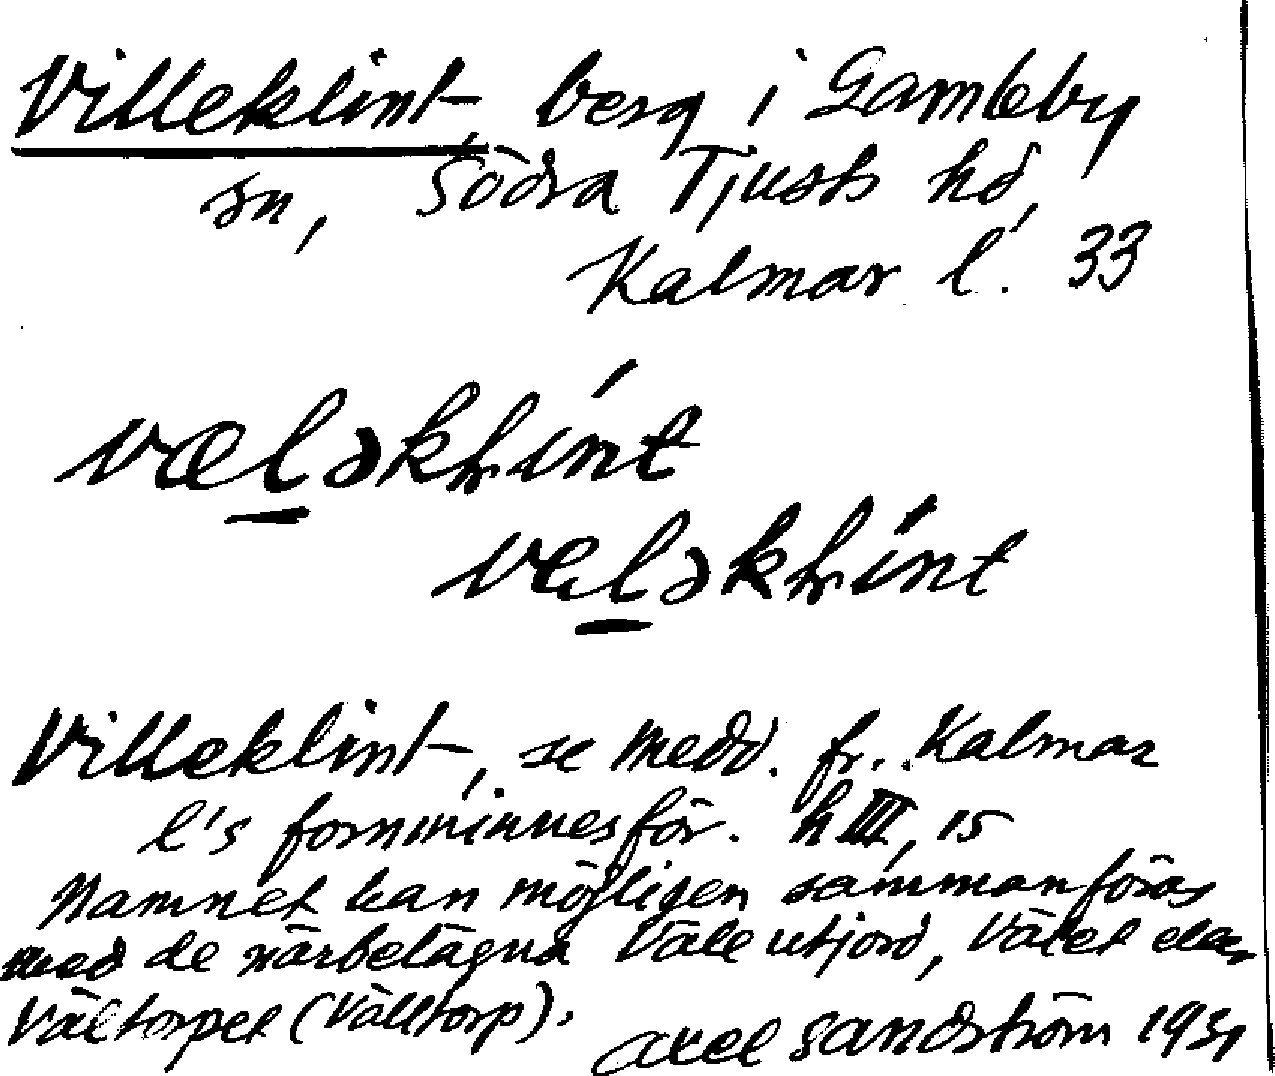 Villeklint, berg i Gamleby
sn, Södra Tjusts hd,
Kalmar l. 33
væləkļint
veləkļint
Villeklint, se Medd. fr. Kalmar
l's fornminnesför. h III, 15
Namnet kan möjligen sammanföras
med de närbelägna Väle utjord, Välet eller
Vältorpet (Välltorp).
Axel Sandström 1931